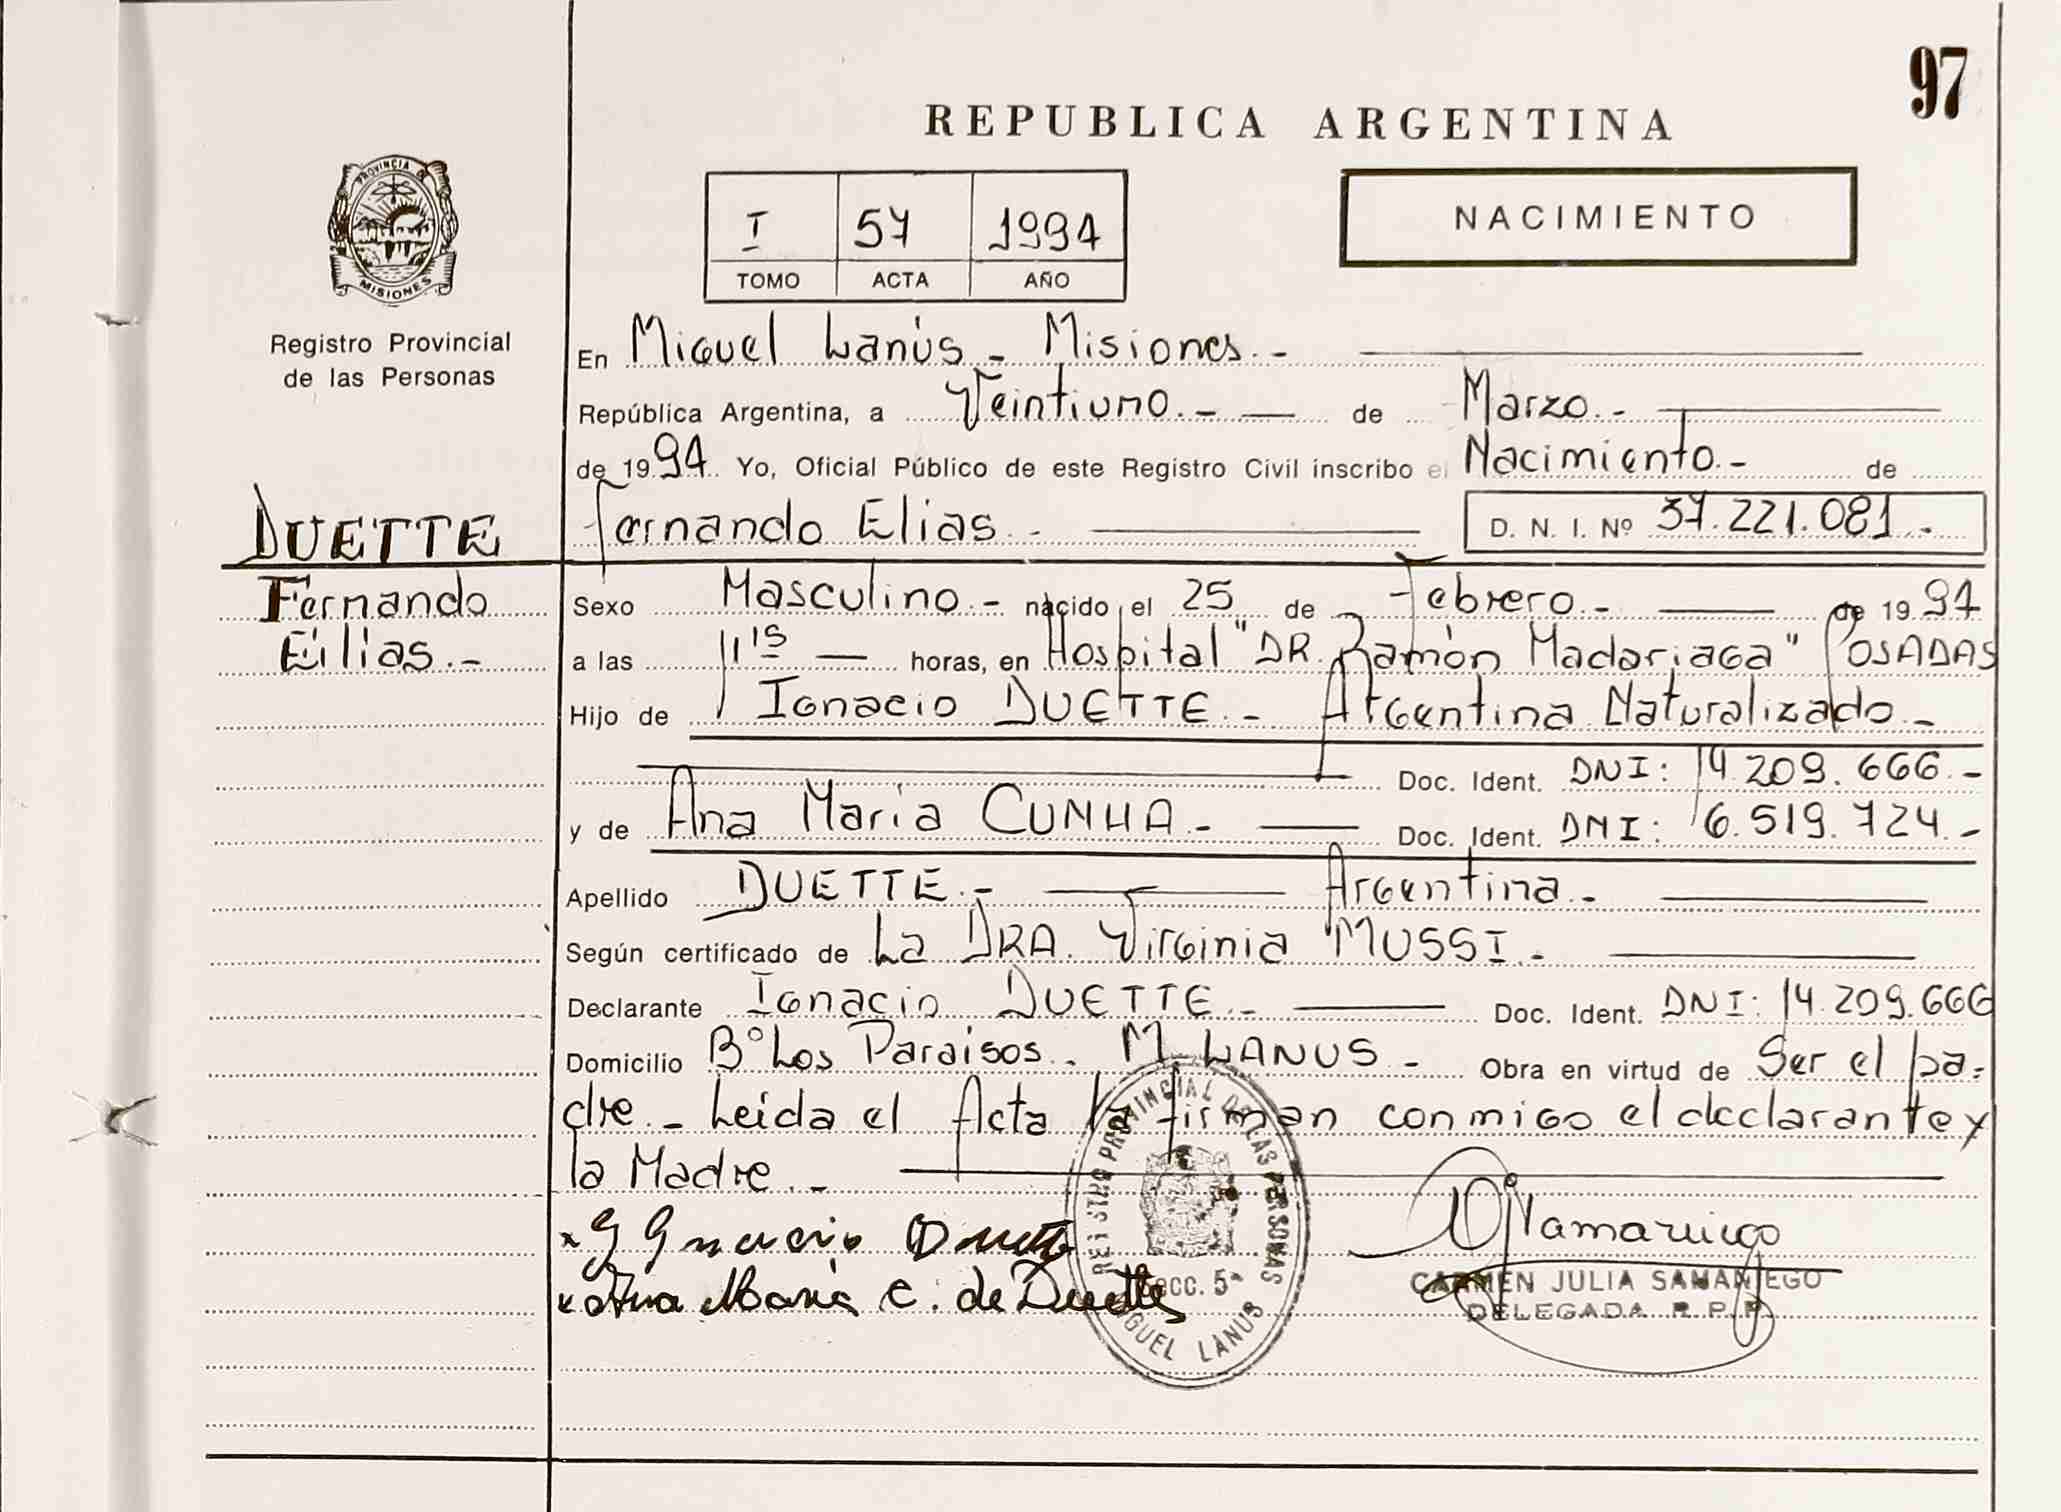 97
REPUBLICA ARGENTINA
PROVINCIA DE
MISIONES
Registro Provincial
de las Personas
I 57 1994
TOMO ACTA AÑO
NACIMIENTO
En Miguel Lanús - Misiones.-
República Argentina, a Veintiuno.- de Marzo.-
de 1994 Yo, Oficial Público de este Registro Civil inscribo el Nacimiento.- de
DUETTE
Fernando
Elias.-
Fernando Elias.- D. N. I. Nº 37.221.081.-
Sexo Masculino.- nacido el 25 de Febrero.- de 1994
a las 11 15 horas, en Hospital "DR. Ramón Madariaga" POSADAS
Hijo de Ignacio DUETTE.- Argentina Naturalizado.-
Doc. Ident. DNI: 14.209.666.-
y de Ana Maria CUNHA.- Doc. Ident. DNI: 16.519.724.-
Apellido DUETTE.- Argentina.-
Según certificado de La DRA. Virginia MUSSI.-
Declarante Ignacio DUETTE.- Doc. Ident. DNI: 14.209.666
Domicilio Bº Los Paraisos. M. LANUS.- Obra en virtud de Ser el pa-
dre.- Leida el Acta la firman conmigo el declarante y
la Madre.-
Ignacio Duette
Ana Maria C. de Duette
REGISTRO PROVINCIAL DE LAS PERSONAS
SECC. 5ª
MIGUEL LANUS
CARMEN JULIA SAMANIEGO
DELEGADA R.P.P.